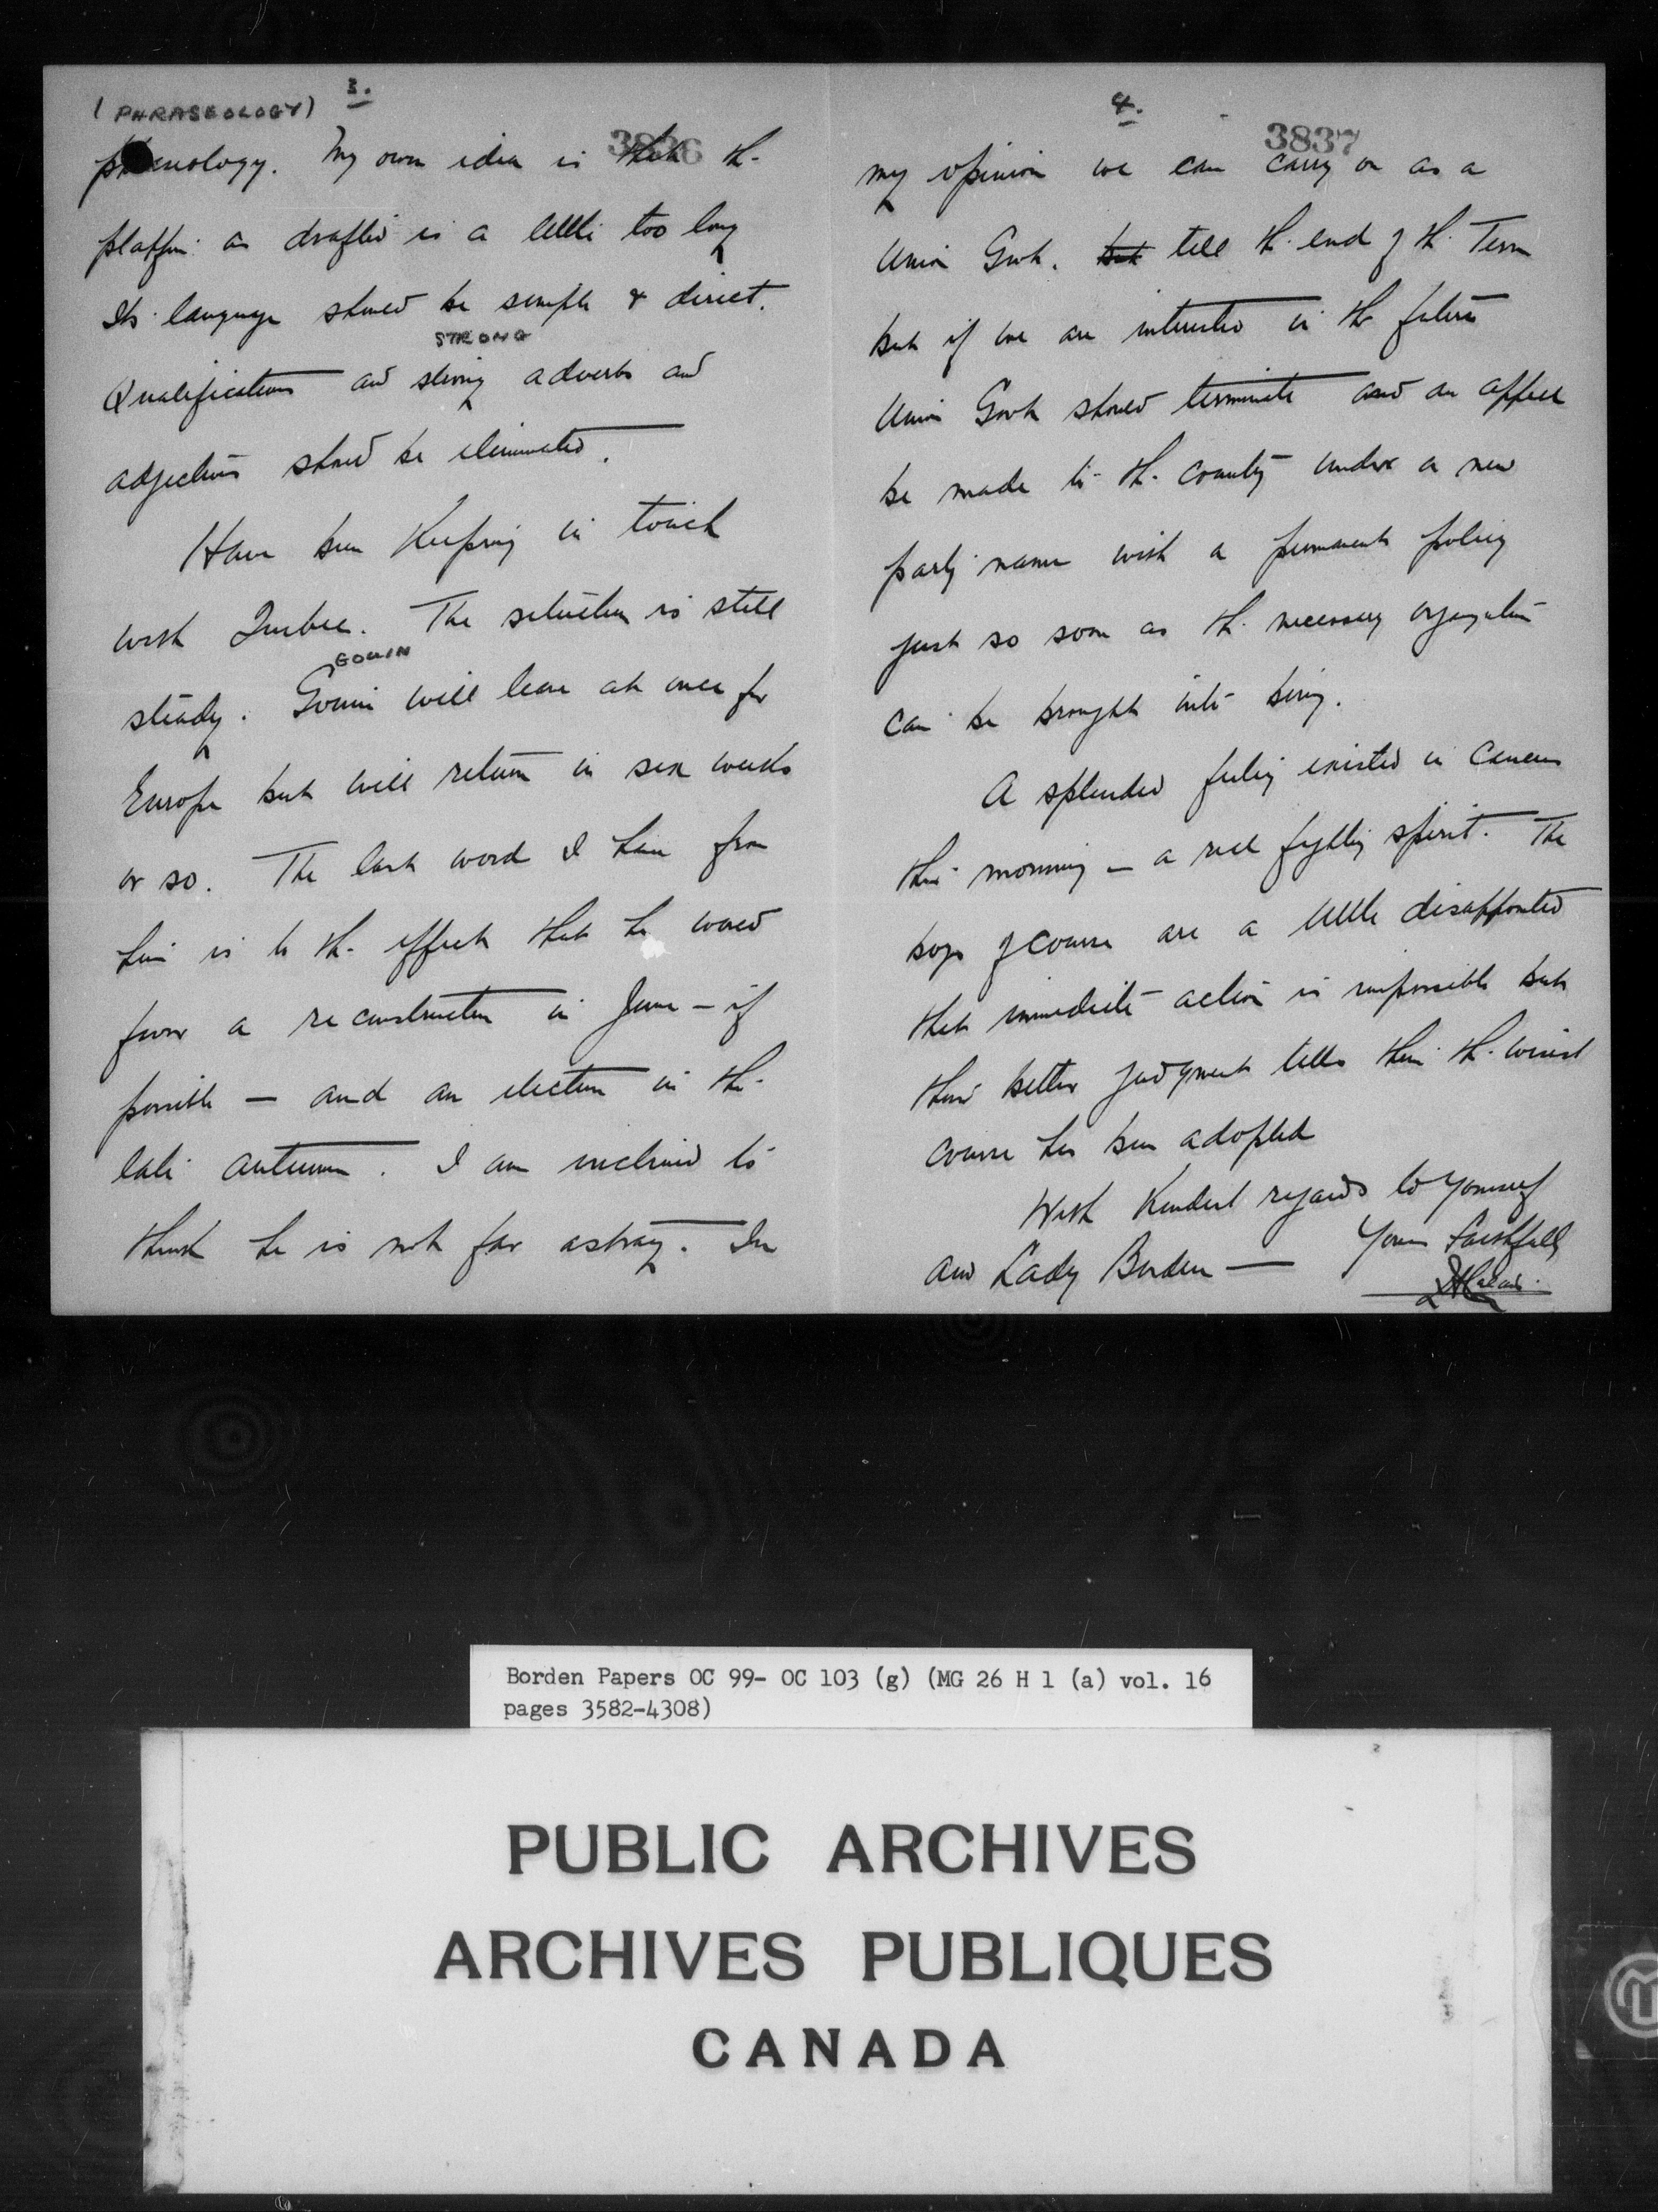 3.
(PHRASEOLOGY)
3836
phraseology. My own idea is that the
platform as drafted is a little too long
Its language should be simple & direct.
STRONG
Qualifications and strong adverbs and
adjectives should be eliminated.
Have been keeping in touch
with Quebec. The situation is still
GOUIN
steady. Gouin will leave at once for
Europe but will return in six weeks
or so. The last word I have from
him is to the effect that he would
favor a reconstruction in June – if
possible – and an election in the
late autumn. I am inclined to
think he is not far astray. In
4.
3837
my opinion we can carry on as a
Union Govt. but till the end of the Term
but if we are interested in the future
Union Govt should terminate and an appeal
be made to the country under a new
party name with a permanent policy
just so soon as the necessary organization
can be brought into being.
A splendid feeling existed in Caucus
this morning – a real fighting spirit. The
boys of course are a little disappointed
that immediate action is impossible but
their better judgment tells them the wisest
course has been adopted
With kindest regards to yourself
and Lady Borden — Yours faithfully
Borden Papers OC 99- OC 103 (g) (MG 26 H 1 (a) vol. 16
pages 3582-4308)
PUBLIC ARCHIVES
ARCHIVES PUBLIQUES
CANADA